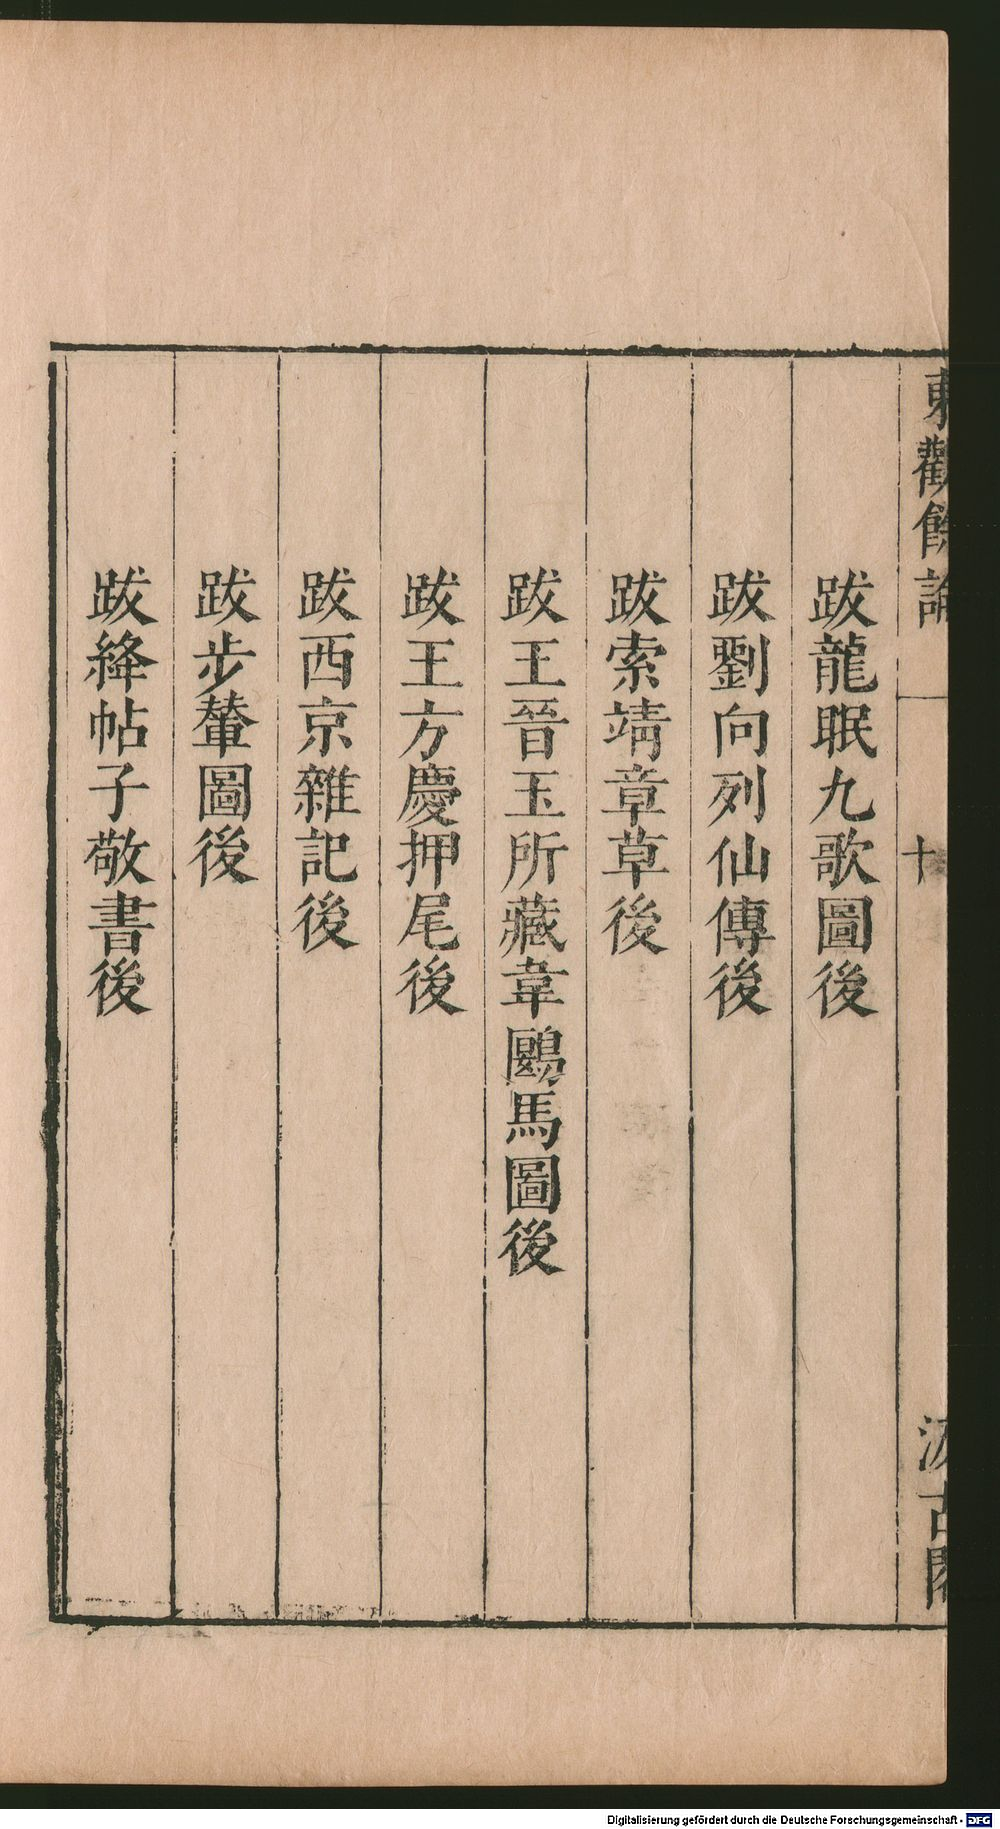 東觀餘論
十
汲古閣
跋龍眠九歌圖後
跋劉向列仙傳後
跋索靖章草後
跋王晉玉所藏韋鶠馬圖後
跋王方慶押尾後
跋西京雜記後
跋步輦圖後
跋絳帖子敬書後
Digitalisierung gefördert durch die Deutsche Forschungsgemeinschaft - DFG